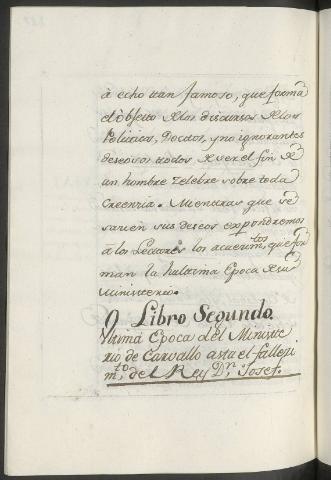 à echo tan famoso, que forma
el objeto de los discursos de los
Politicos, Doctos, y no ignorantes
deseosos todos de ver el fin de
un hombre zelebre sobre toda
Creencia. Mientras que se
sacien sus deseos expondremos
à los Lectores los acaecim.tos que for
man la hultima Epoca de su
Ministerio.
Libro Segundo.
Vltima Epoca del Ministe
rio de Carvallo asta el fallezi
m.to del Rey D.n Josef.